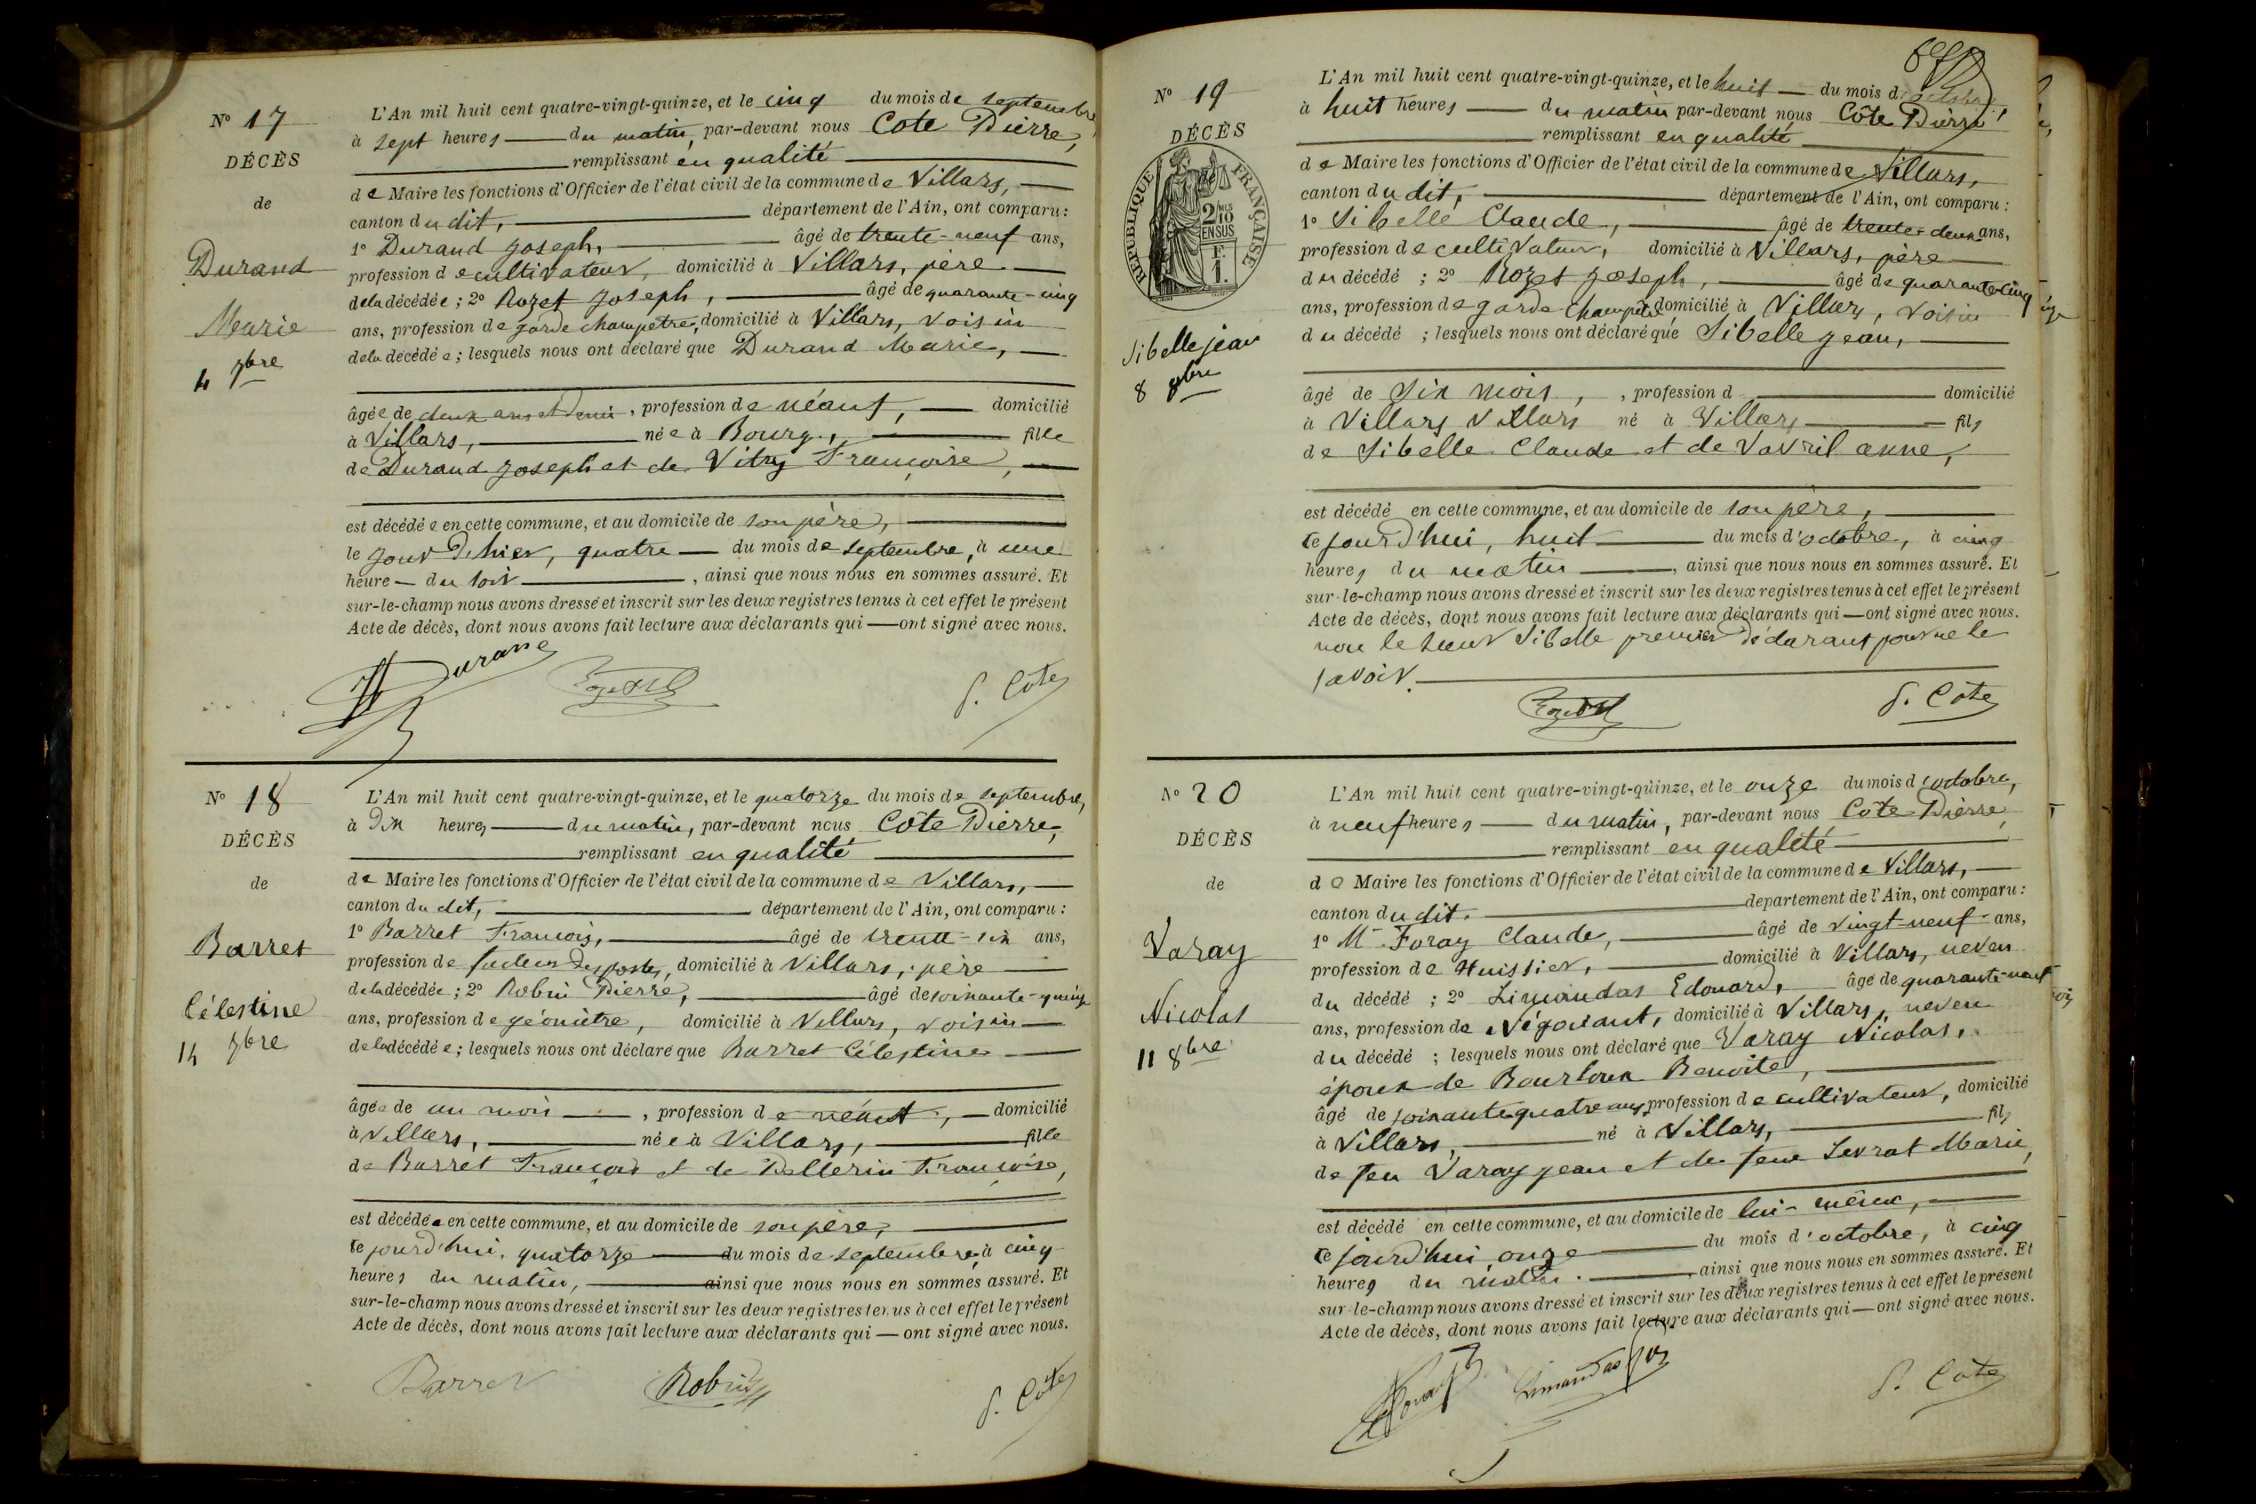 N° 17
DÉCÈS
de
Durand
Marie
4 7bre
L'An mil huit cent quatre-vingt-quinze, et le cinq du mois de septembre
à sept heures du matin, par-devant nous Côte Pierre,
remplissant en qualité
de Maire les fonctions d'Officier de l'état civil de la commune de Villars,
canton dudit, département de l'Ain, ont comparu :
1° Durand Joseph, âgé de trente-neuf ans,
profession de cultivateur, domicilié à Villars, père
de la décédée ; 2° Rozet Joseph, âgé de quarante-cinq
ans, profession de garde champêtre, domicilié à Villars, voisin
de la décédée ; lesquels nous ont déclaré que Durand Marie,
âgée de deux ans et demi, profession de néant, domicilié
à Villars, née à Bourg, fille
de Durand Joseph et de Vitry Françoise,
est décédée en cette commune, et au domicile de son père,
le jour d'hier, quatre du mois de septembre, à une
heure du soir, ainsi que nous nous en sommes assuré. Et
sur-le-champ nous avons dressé et inscrit sur les deux registres tenus à cet effet le présent
Acte de décès, dont nous avons fait lecture aux déclarants qui ont signé avec nous.
Durand P. Côte
N° 18
DÉCÈS
de
Barret
Célestine
14 7bre
L'An mil huit cent quatre-vingt-quinze, et le quatorze du mois de septembre,
à dix heures du matin, par-devant nous Côte Pierre,
remplissant en qualité
de Maire les fonctions d'Officier de l'état civil de la commune de Villars,
canton dudit, département de l'Ain, ont comparu :
1° Barret François, âgé de trente-six ans,
profession de facteur des postes, domicilié à Villars, père
de la décédée ; 2° Robin Pierre, âgé de soixante-quinze
ans, profession de géomètre, domicilié à Villars, voisin
de la décédée ; lesquels nous ont déclaré que Barret Célestine
âgée de un mois, profession de néant, domicilié
à Villars, née à Villars, fille
de Barret François et de Pellerin Françoise,
est décédée en cette commune, et au domicile de son père,
ce jourd'hui, quatorze du mois de septembre, à cinq
heures du matin, ainsi que nous nous en sommes assuré. Et
sur-le-champ nous avons dressé et inscrit sur les deux registres tenus à cet effet le présent
Acte de décès, dont nous avons fait lecture aux déclarants qui ont signé avec nous.
Barret Robin P. Côte
N° 19
DÉCÈS
RÉPUBLIQUE FRANÇAISE
2/10 EN SUS
1 F.
Sibelle Jean
8 8bre
L'An mil huit cent quatre-vingt-quinze, et le huit du mois d'octobre,
à huit heures du matin par-devant nous Côte Pierre,
remplissant en qualité
de Maire les fonctions d'Officier de l'état civil de la commune de Villars,
canton dudit, département de l'Ain, ont comparu :
1° Sibelle Claude, âgé de trente-deux ans,
profession de cultivateur, domicilié à Villars, père
du décédé ; 2° Rozet Joseph, âgé de quarante-cinq
ans, profession de garde champêtre domicilié à Villars, voisin
du décédé ; lesquels nous ont déclaré que Sibelle Jean,
âgé de six mois, , profession d domicilié
à Villars Villars né à Villars fils
de Sibelle Claude et de Vavril anne,
est décédé en cette commune, et au domicile de son père,
ce jourd'hui, huit du mois d'octobre, à cinq
heures du matin, ainsi que nous nous en sommes assuré. Et
sur-le-champ nous avons dressé et inscrit sur les deux registres tenus à cet effet le présent
Acte de décès, dont nous avons fait lecture aux déclarants qui ont signé avec nous.
non le sieur Sibelle premier déclarant pour ne le
savoir.
P. Côte
N° 20
DÉCÈS
de
Varay
Nicolas
11 8bre
L'An mil huit cent quatre-vingt-quinze, et le onze du mois d'octobre,
à neuf heures du matin, par-devant nous Côte Pierre,
remplissant en qualité
de Maire les fonctions d'Officier de l'état civil de la commune de Villars,
canton dudit. département de l'Ain, ont comparu :
1° Mr Foray Claude, âgé de vingt-neuf ans,
profession de Huissier, domicilié à Villars, neveu
du décédé ; 2° Limandas Edouard, âgé de quarante-neuf
ans, profession de Négociant, domicilié à Villars, neveu
du décédé ; lesquels nous ont déclaré que Varay Nicolas,
époux de Bourloux Benoite,
âgé de soixante quatre ans, profession de cultivateur, domicilié
à Villars, né à Villars, fils
de feu Varay Jean et de feue Levrat Marie,
est décédé en cette commune, et au domicile de lui-même,
ce jourd'hui onze du mois d'octobre, à cinq
heures du matin. ainsi que nous nous en sommes assuré. Et
sur-le-champ nous avons dressé et inscrit sur les deux registres tenus à cet effet le présent
Acte de décès, dont nous avons fait lecture aux déclarants qui ont signé avec nous.
Limandas P. Côte